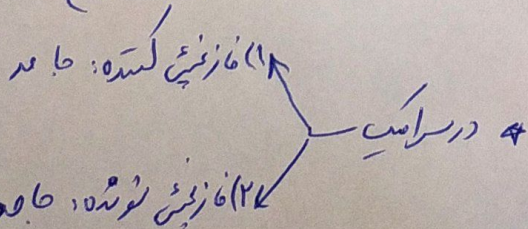 * در سرامیک
۱) فاز پخش کننده: جامد
۲) فاز پخش شونده: جامد